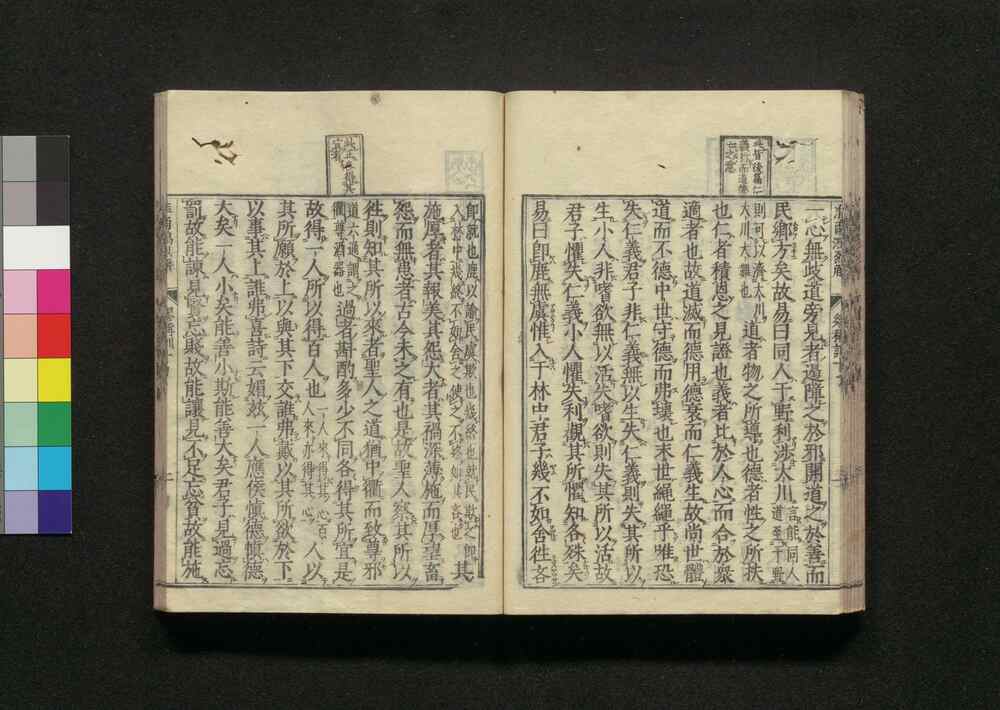 一心無歧道旁見者遏障之於邪開道之於善而
民鄉方矣故易曰同人于野利涉大川言能同人道至于野
則可以濟大川大川大難也道者物之所導也德者性之所扶
也仁者積恩之見證也義者比於人心而合於衆
適者也故道滅而德用德衰而仁義生故尚世體
道而不德中世守德而弗壞也末世繩繩乎唯恐
失仁義君子非仁義無以生失仁義則失其所以
生小人非嗜欲無以活失嗜欲則失其所以活故
君子懼失仁義小人懼失利觀其所懼知各殊矣
易曰卽鹿無虞惟入于林中君子幾不如舍往吝
卽就也鹿以諭民虞欺也幾終也就民欺之卽
入林中幾終不如舍之使之不終如其吝也其
施厚者其報美其怨大者其禍深薄施而厚望畜
怨而無患者古今未之有也是故聖人察其所以
徃則知其所以來者聖人之道猶中衢而致尊邪
道六通謂之衢尊酒器也過者斟酌多少不同各得其所宜是
故得一人所以得百人也人以
其所願於上以與其下交誰弗戴以其所欲於下
以事其上誰弗喜詩云媚兹一人應侯愼德愼德
大矣一人小矣能善小斯能善大矣君子見過忘
罰故能諫見賢忘賤故能讓見不足忘貧故能施